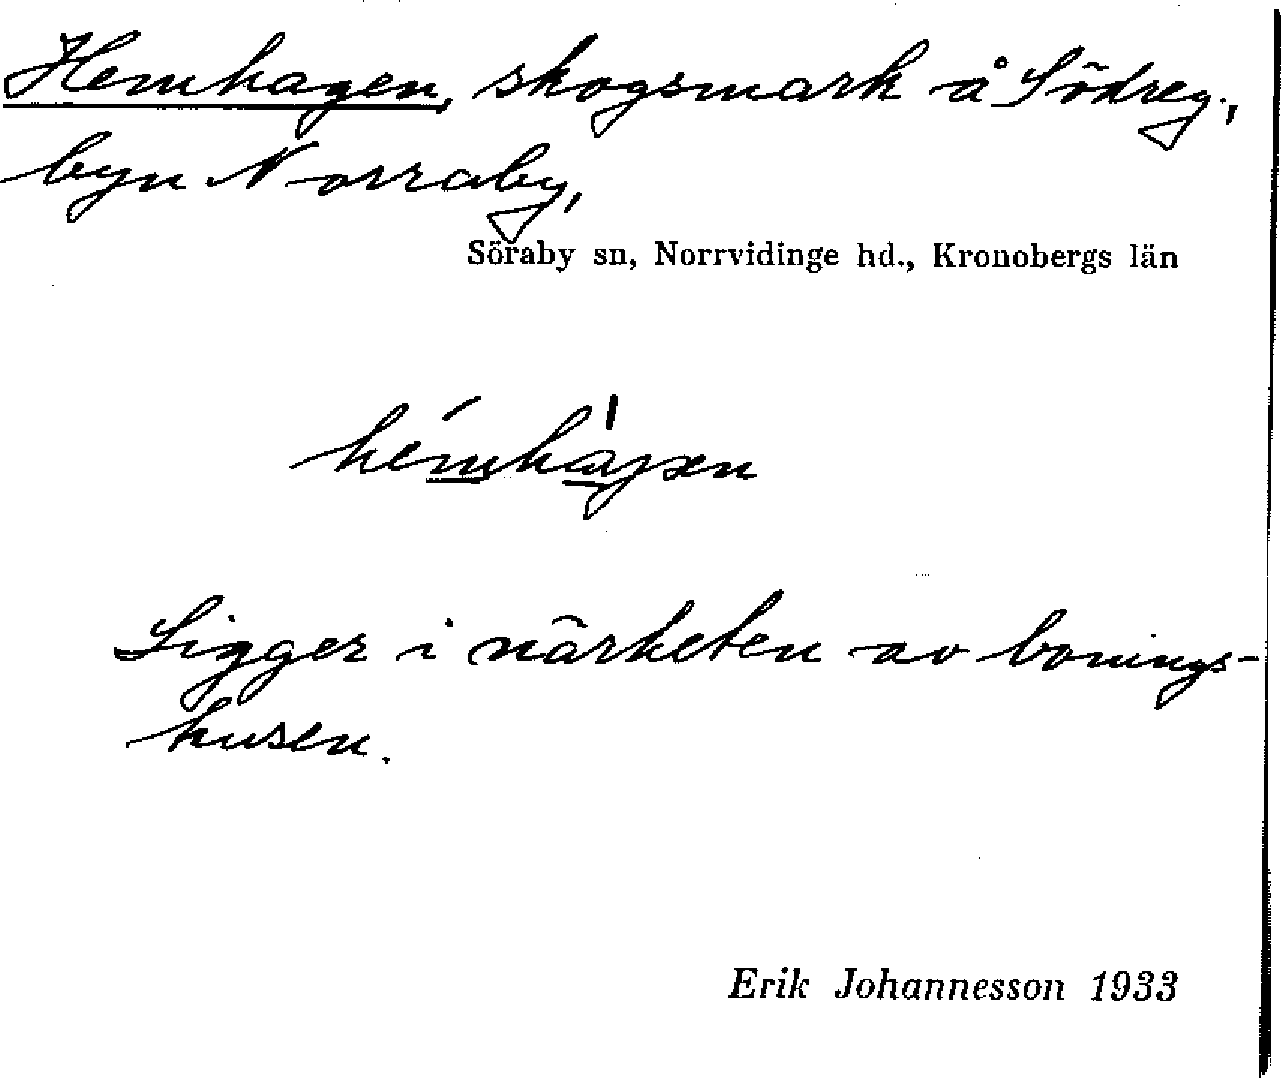 Hemhagen, skogsmark å Södreg.,
byn Norraby,
Söraby sn, Norrvidinge hd., Kronobergs län
Ligger i närheten av bonings-
husen.
Erik Johannesson 1933